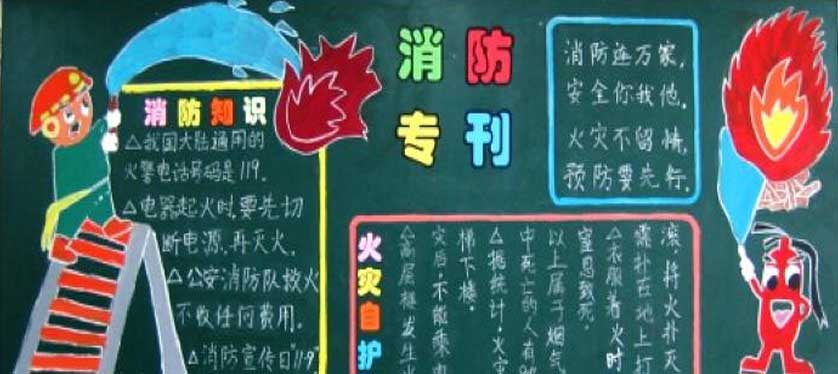 消防
专刊
消防知识
△我国大陆通用的
火警电话号码是119。
△电器起火时,要先切
断电源,再灭火。
△公安消防队救火
不收任何费用。
△消防宣传日"11·9"
消防连万家,
安全你我他。
火灾不留情,
预防要先行。
火灾自护
△高层楼发生火
灾后,不能乘电
梯下楼。
△据统计,火灾
中死亡的人有
以上属于烟气
窒息致死。
△衣服着火时
需扑在地上打
滚,将火扑灭